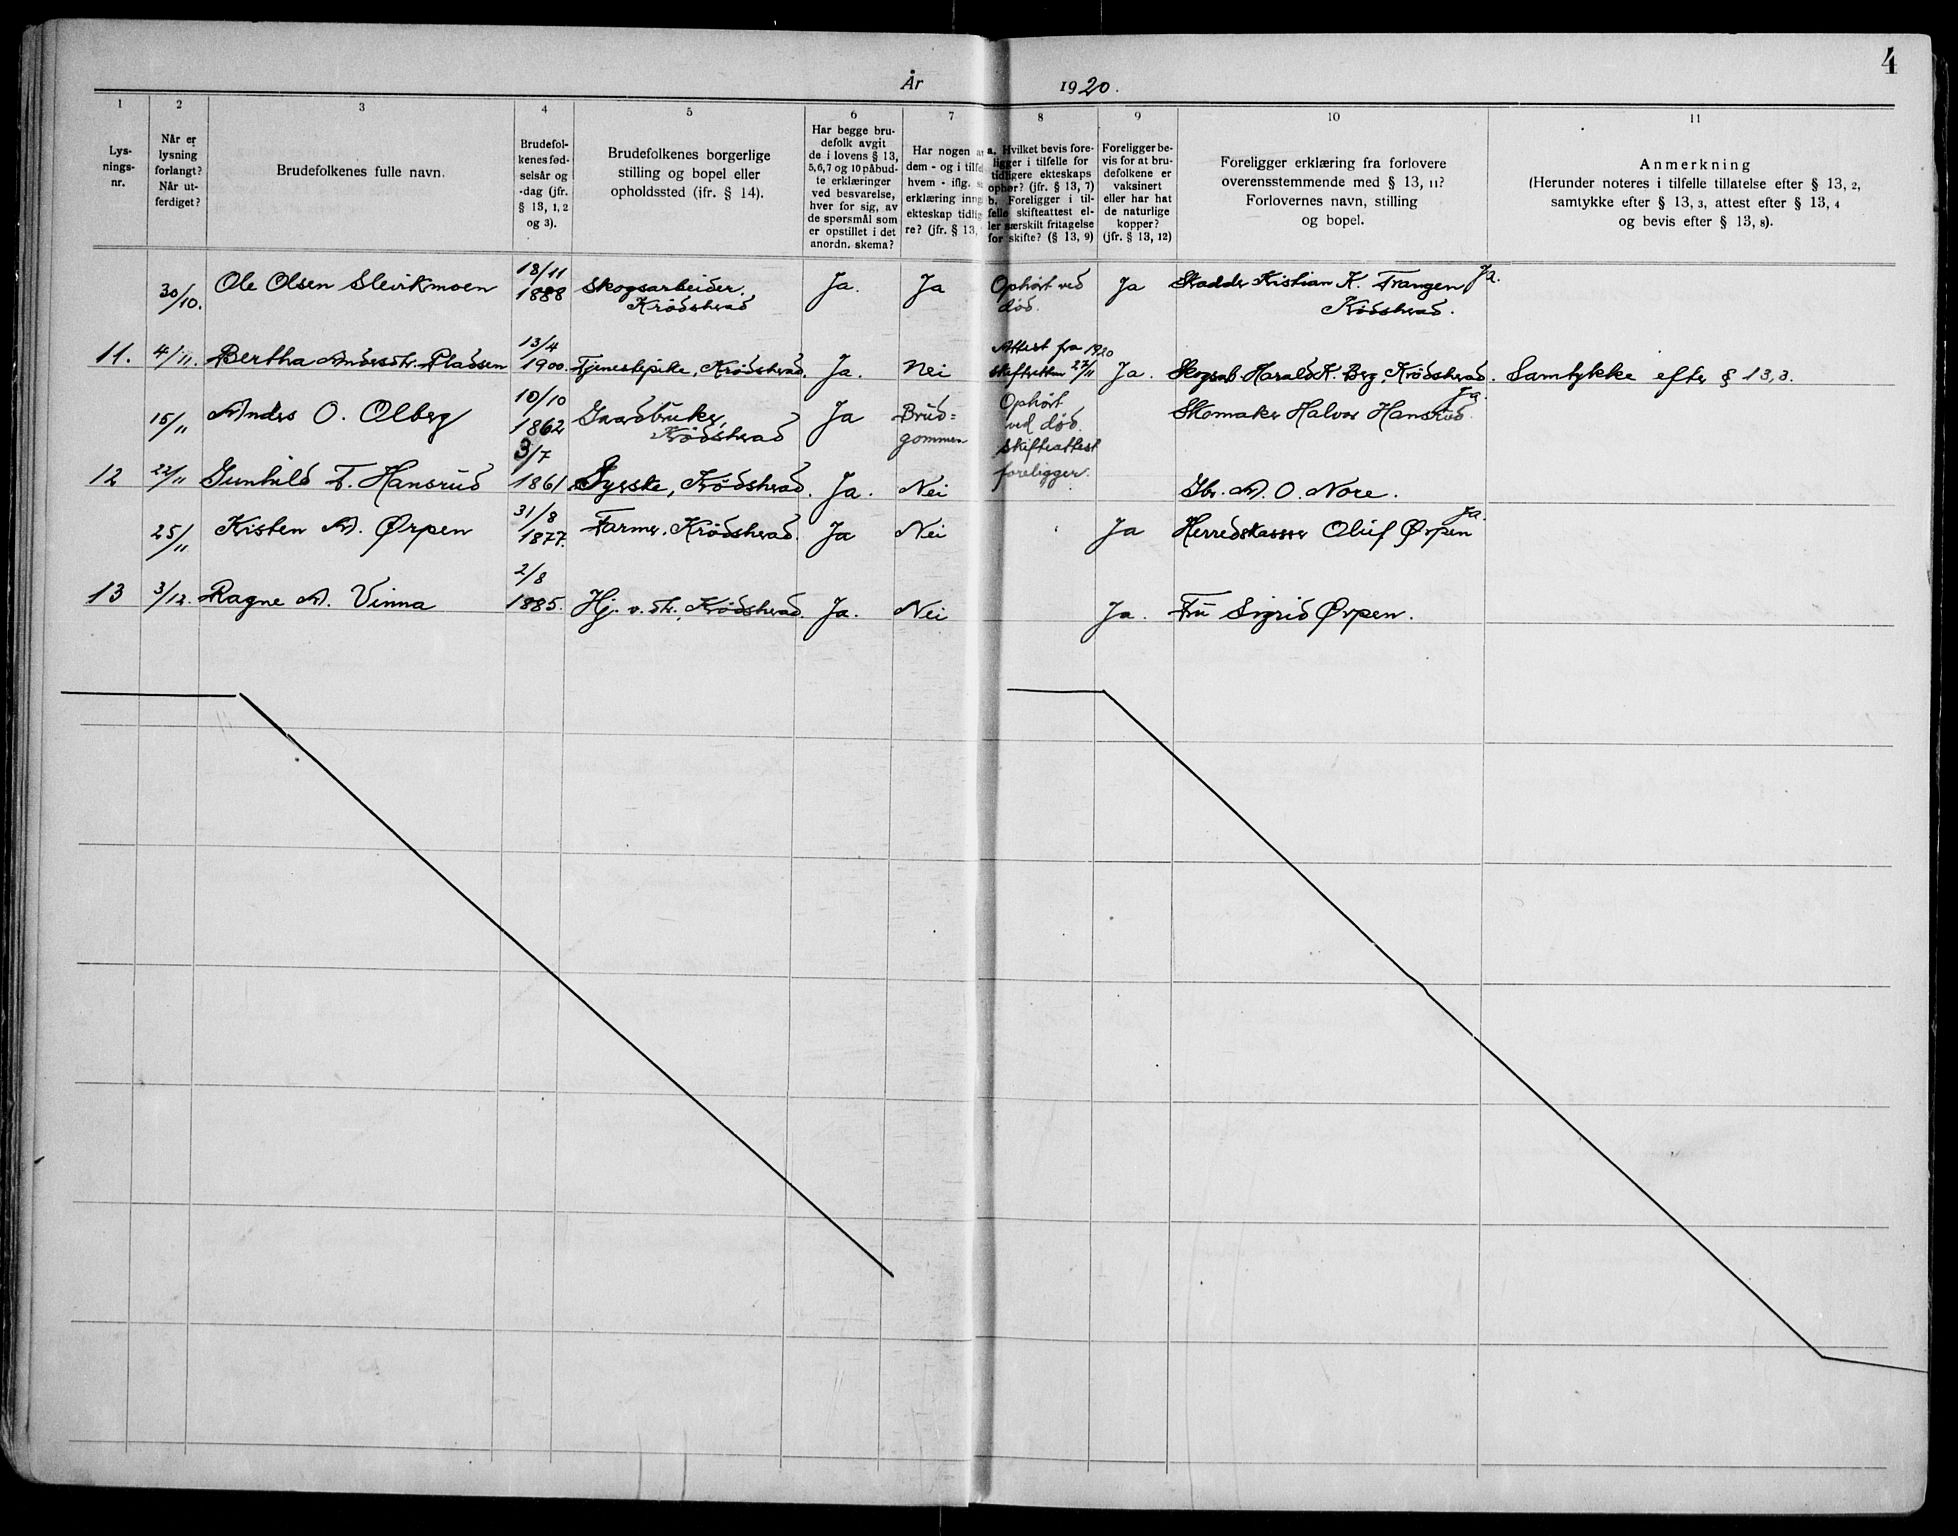 4
År 1920.
1 2 3 4 5 6 7 8 9 10 11
Lys-
nings-
nr.
Når er
lysning
forlangt?
Når ut-
ferdiget?
Brudefolkenes fulle navn.
Brudefol-
kenes fød-
selsår og
-dag (jfr.
§ 13, 1, 2
og 3).
Brudefolkenes borgerlige
stilling og bopel eller
opholdssted (ifr. § 14).
Har begge bru-
defolk avgit
de i lovens § 13,
5,6,7 og 10 påbud-
te erklæringer
ved besvarelse,
hver for sig, av
de spørsmål som
er opstillet i det
anordn. skema?
Har nogen a
dem - og i tilfe
hvem - iflg.
erklæring inng
ekteskap tidlig
re? (jfr. § 13,
a. Hvilket bevis fore-
ligger i tilfelle for
tidligere ekteskaps
ophør? (jfr. § 13, 7)
b. Foreligger i til-
felle skifteattest el-
ler særskilt fritagelse
for skifte? (§ 13, 9)
Foreligger be-
vis for at bru-
defolkene er
vaksinert
eller har hat
de naturlige
kopper?
(jfr. § 13, 12)
Foreligger erklæring fra forlovere
overensstemmende med § 13, 11?
Forlovernes navn, stilling
og bopel.
Anmerkning
(Herunder noteres i tilfelle tillatelse efter § 13, 2,
samtykke efter § 13, 3, attest efter § 13, 4
og bevis efter § 13, 8).
30/10. Ole Olsen Slevikmoen 18/11 1888 Skogsarbeider. Krødsherad Ja. Ja Ophørt ved død. Ja Kristian K. Trangen Ja.
Krødsherad.
11. 4/11. Bertha Andersdtr. Pladsen 13/4 1900. Tjenestepike, Krødsherad. Ja. Nei Attest fra skifteretten 27/11 1920 Ja. Skogsarb. Harald K. Berg, Krødsherad. Samtykke efter § 13,3.
15/11 Anders O. Olberg 10/10 1862 Gaardbruker, Krødsherad Ja Brud=
gommen Ophørt
ved død.
Skifteattest
foreligger. Skomaker Halvor Hansrud. Ja.
12 22/11 Gunhild T. Hansrud 3/7 1861 Syerske, Krødsherad. Ja. Nei Gbr. A. O. Nore.
25/11 Kristen A. Ørpen 31/8 1877. Farmer. Krødsherad. Ja Nei Ja Herredskasserer Oluf Ørpen Ja.
13 3/12. Ragne A. Vinna 2/8 1885. Hj. v. dtr., Krødsherad. Ja. Nei Ja. Fru Sigrid Ørpen.